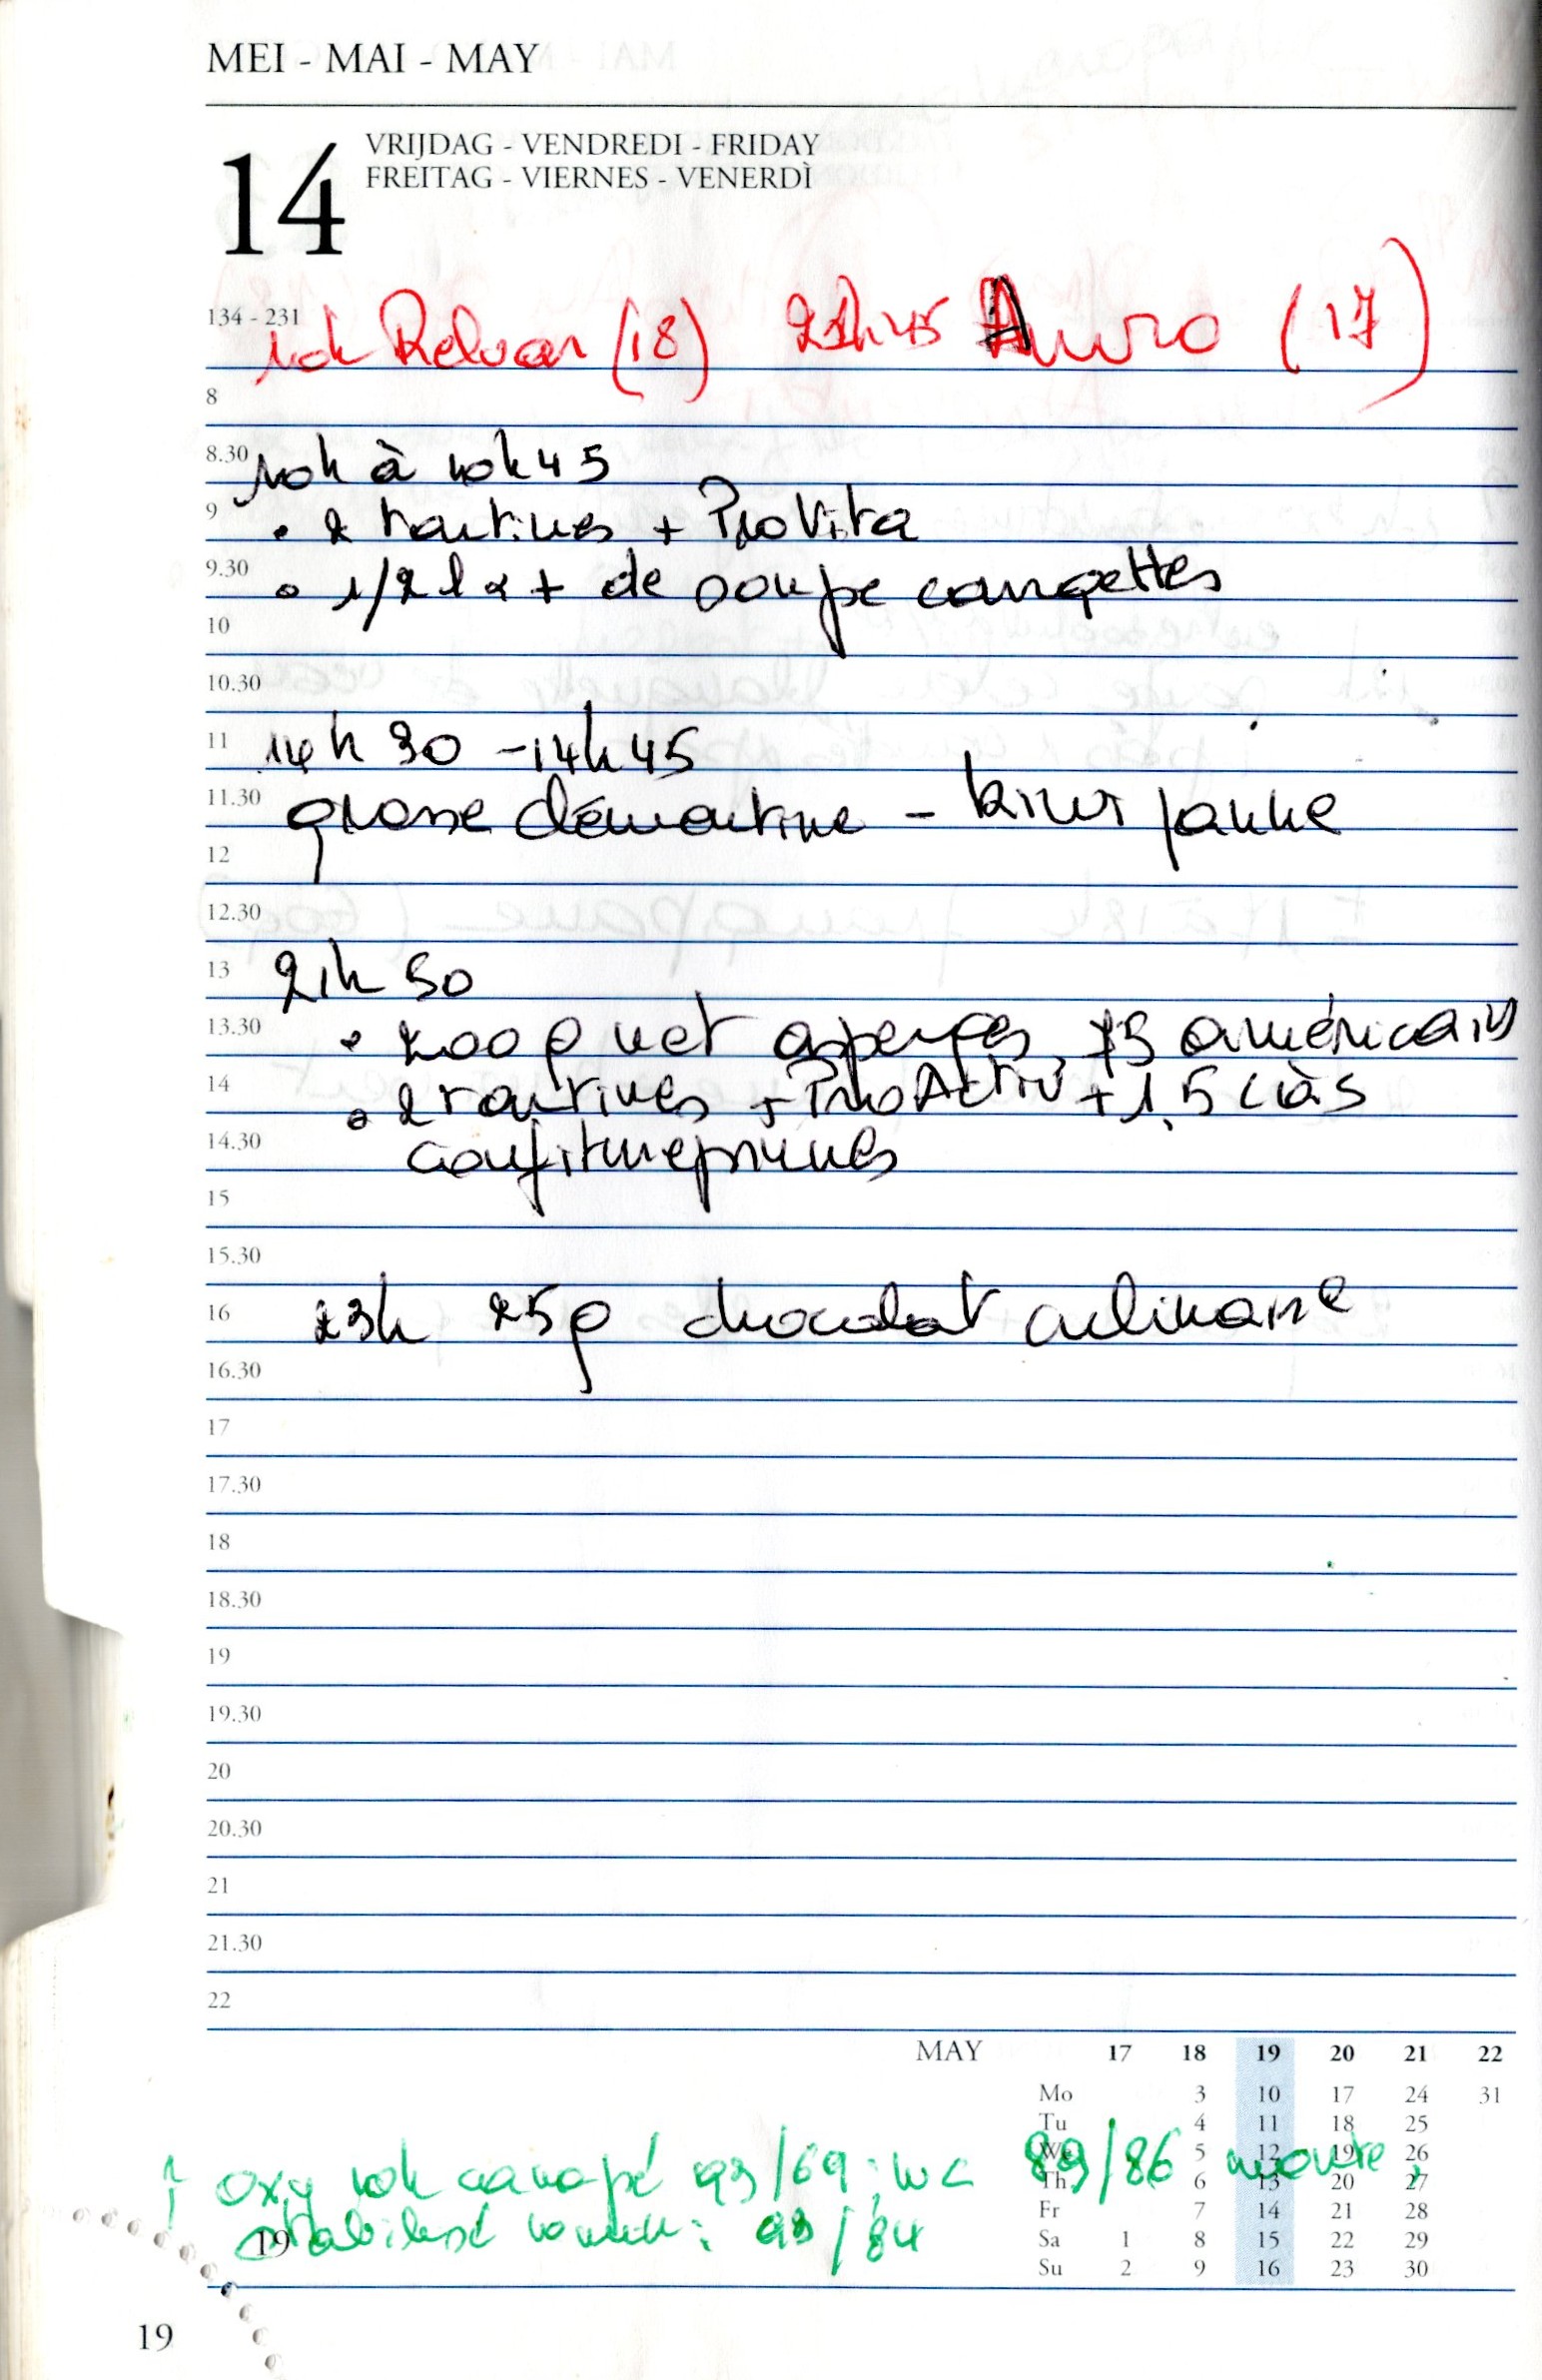 MEI - MAI - MAY
14
VRIJDAG - VENDREDI - FRIDAY
FREITAG - VIERNES - VENERDÌ
134 - 231
10h Relvar (18) 21h45 Auro (17)
8
8.30
10h à 10h45
9
• 2 tartines + ProVita
9.30
• 1/2 l + de soupe courgettes
10
10.30
11
14h30 - 14h45
11.30
grosse clémentine - kiwi jaune
12
12.30
13
21h50
13.30
• 200g net asperges, américain
14
• 2 tartines + ProActiv + 1,5 càs
14.30
confiture prunes
15
15.30
16
23h 25g chocolat culinaire
16.30
17
17.30
18
18.30
19
19.30
20
20.30
21
21.30
22
MAY 17 18 19 20 21 22
Mo 3 10 17 24 31
Tu 4 11 18 25
We 5 12 19 26
Th 6 13 20 27
Fr 7 14 21 28
Sa 1 8 15 22 29
Su 2 9 16 23 30
Oxy 10h canapé 93/69; wc 89/86 monte,
stabilisé 93/84
19
19